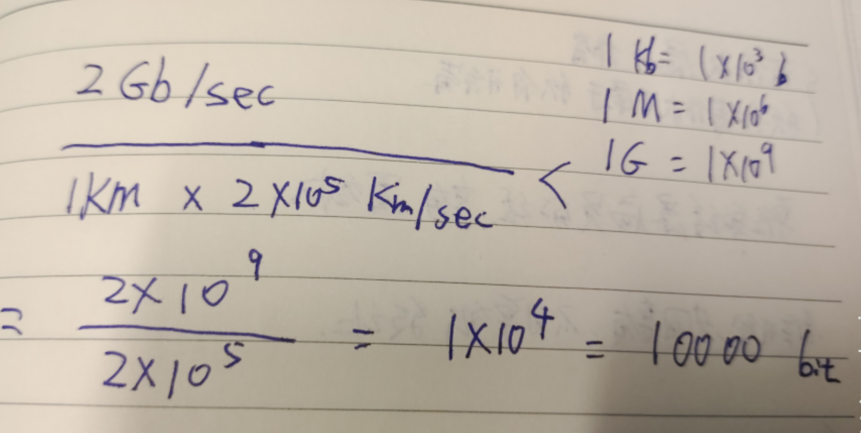 2 Gb/sec
1Km × 2×10⁵ Km/sec
<
1 Kb = 1×10³ b
1 M = 1×10⁶
1G = 1×10⁹
= 2×10⁹ / 2×10⁵ = 1×10⁴ = 10000 bit